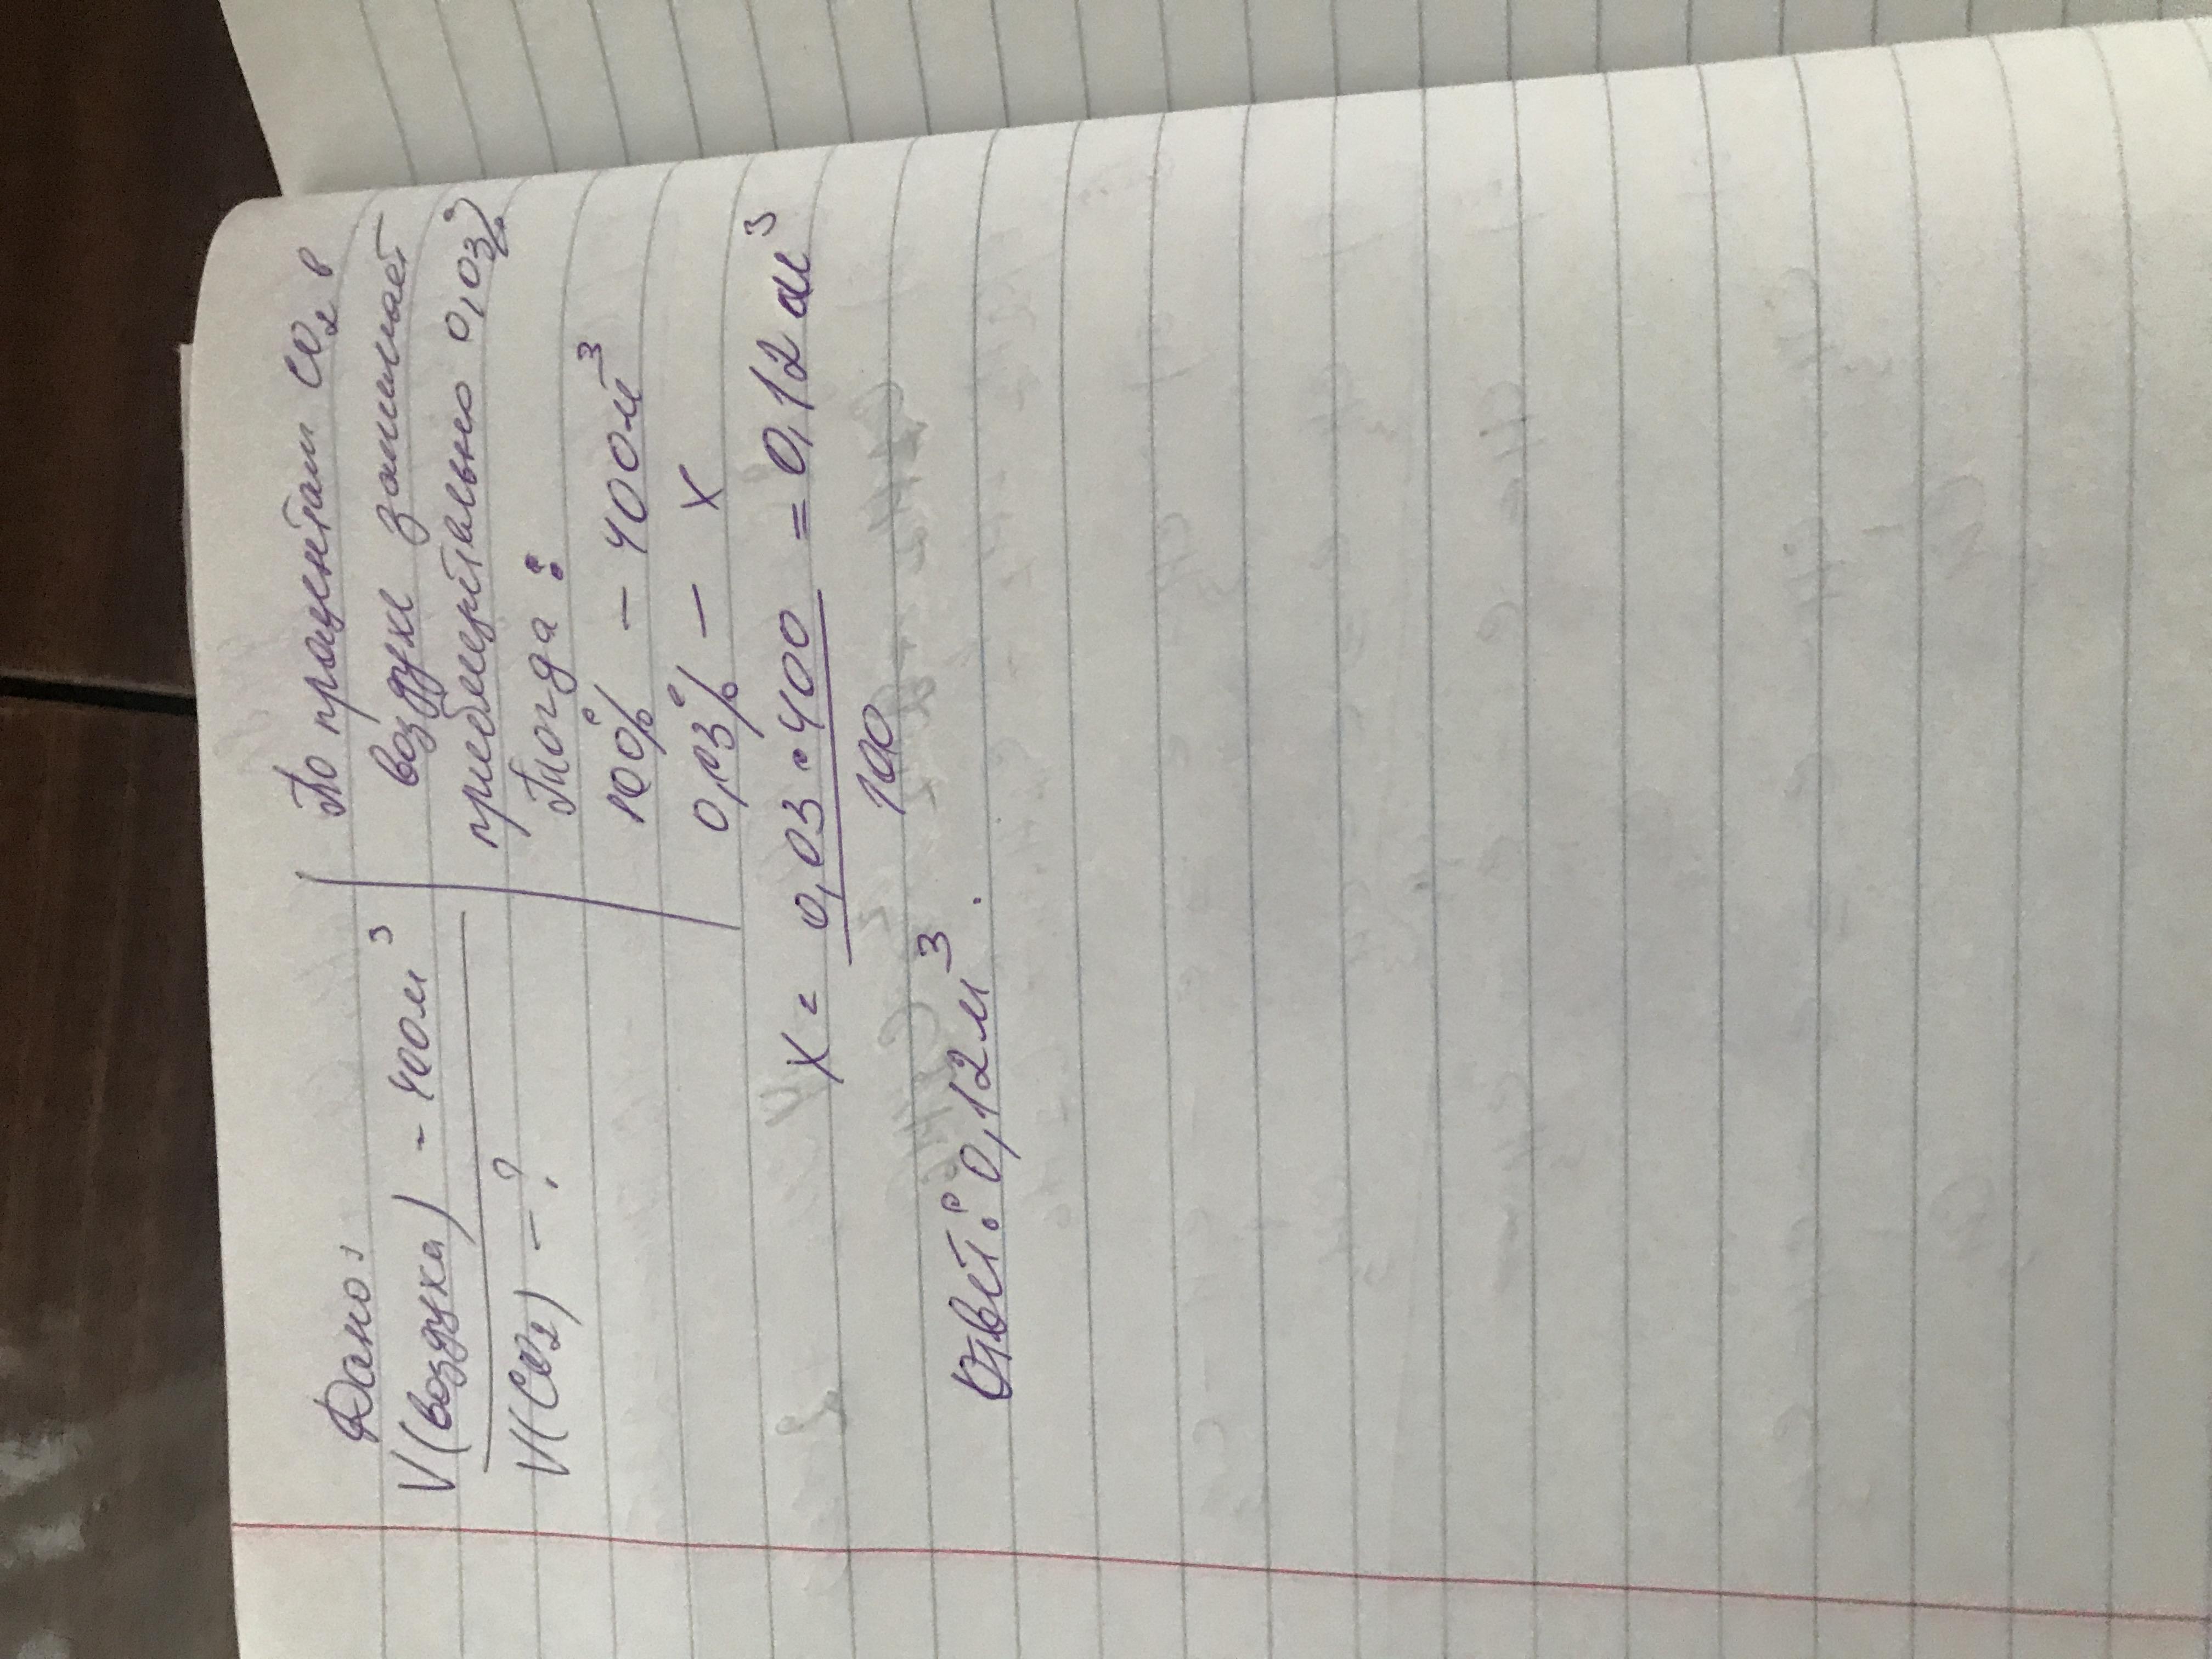 Дано:
V(воздуха) - 400м³
V(CO₂) - ?
По процентам CO₂ в
воздухе занимает
приблизительно 0,03%
Тогда:
100% - 400м³
0,03% - x
x = 0,03 • 400 = 0,12 м³
100
Ответ: 0,12м³.